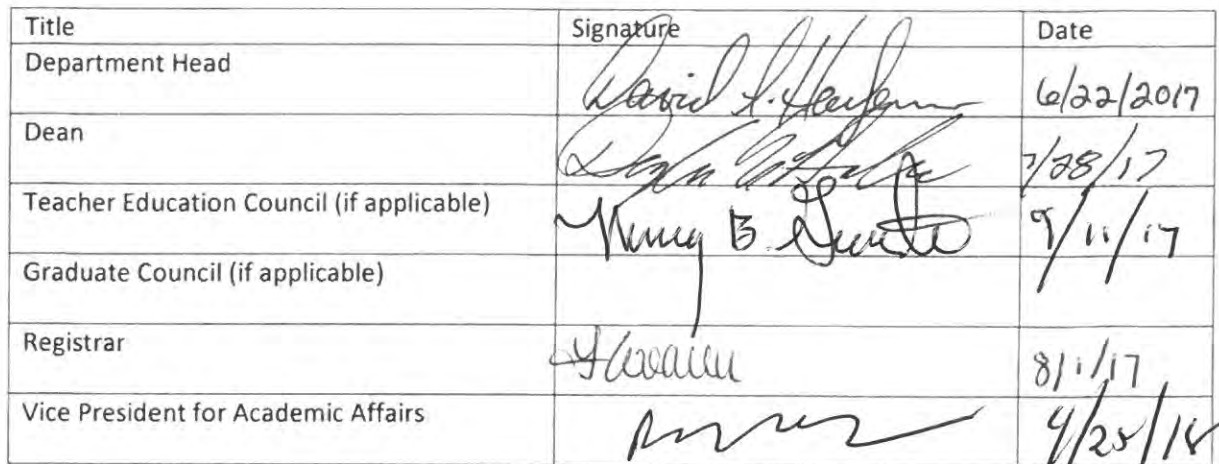 Title Signature Date
Department Head David 6/22/2017
Dean 7/28/17
Teacher Education Council (if applicable) B. 9/11/17
Graduate Council (if applicable)
Registrar 8/1/17
Vice President for Academic Affairs 4/25/18